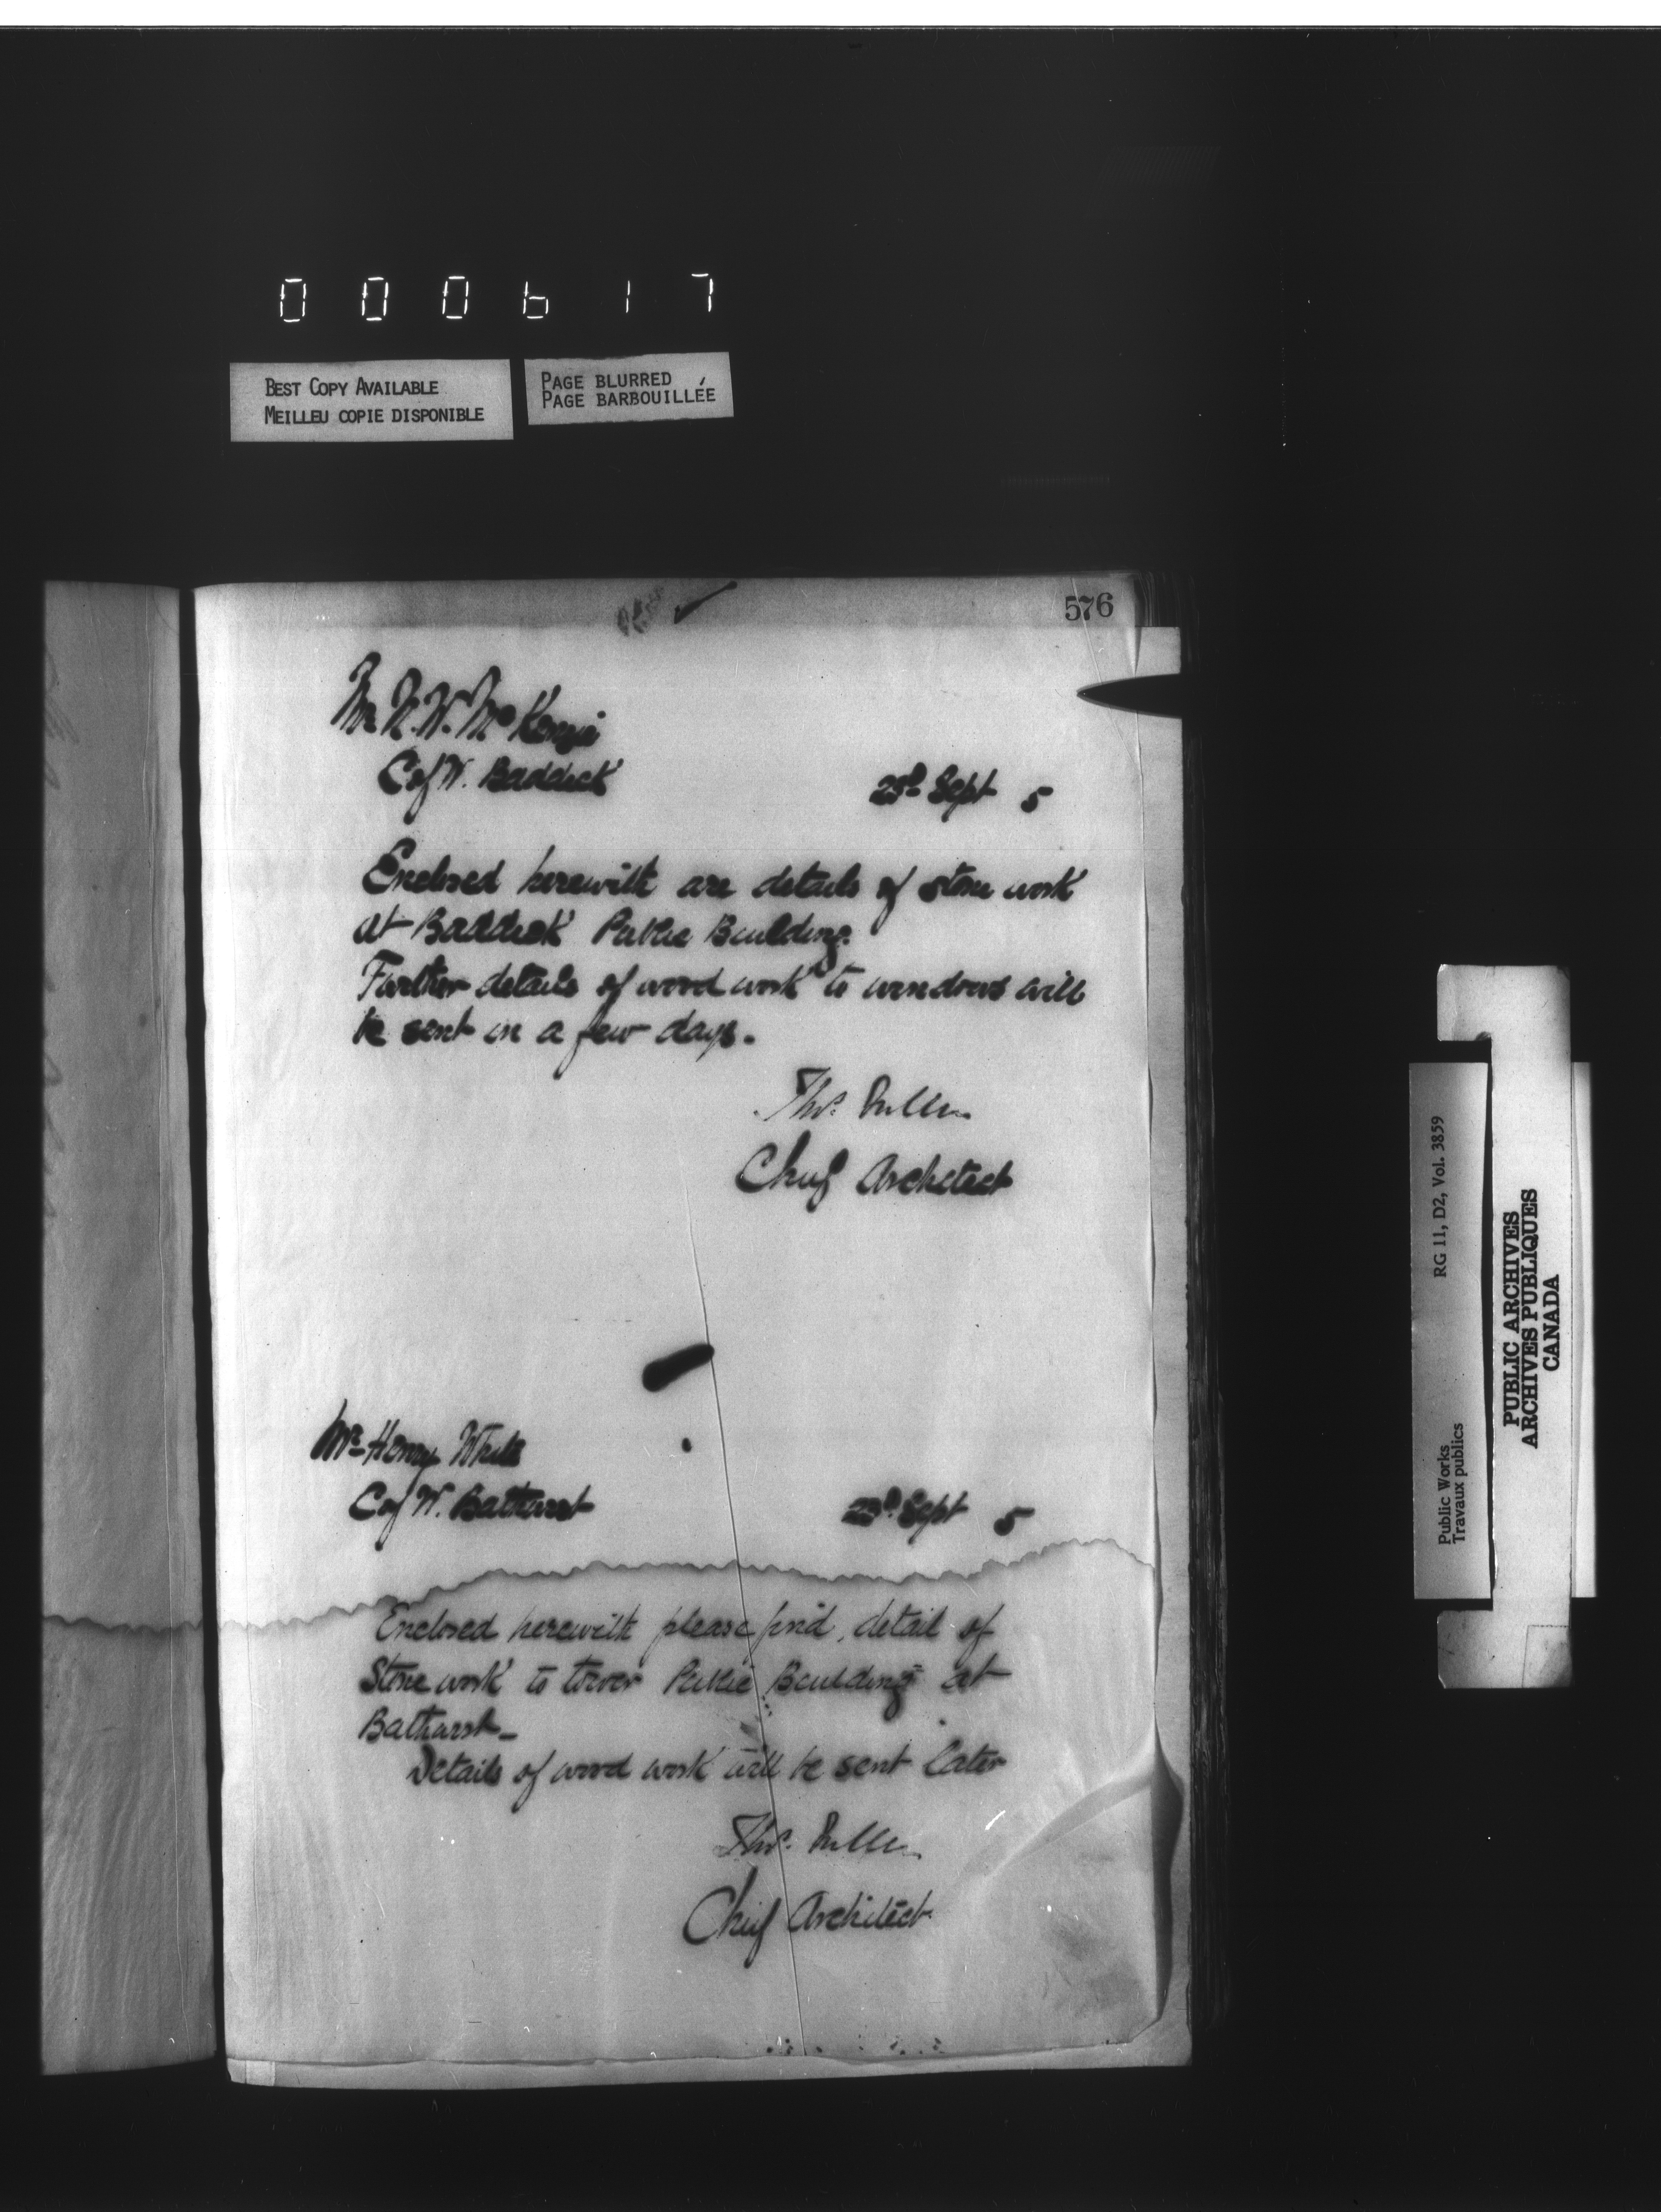 000617
BEST COPY AVAILABLE
MEILLEU COPIE DISPONIBLE
PAGE BLURRED
PAGE BARBOUILLÉE
576
Mr N. W. McKenzie
C of W. Baddeck
23d Sept 5
Enclosed herewith are details of stone work
at Baddeck Public Building.
Further details of wood work to windows will
be sent in a few days.
Thos. Fuller
Chief Architect
Mr Henry White
C of W. Bathurst
23d Sept 5
Enclosed herewith please find, detail of
Stone work to tower Public Building at
Bathurst_
Details of wood work will be sent later
Thos. Fuller
Chief Architect
Public Works
Travaux publics
RG 11, D2, Vol. 3859
PUBLIC ARCHIVES
ARCHIVES PUBLIQUES
CANADA